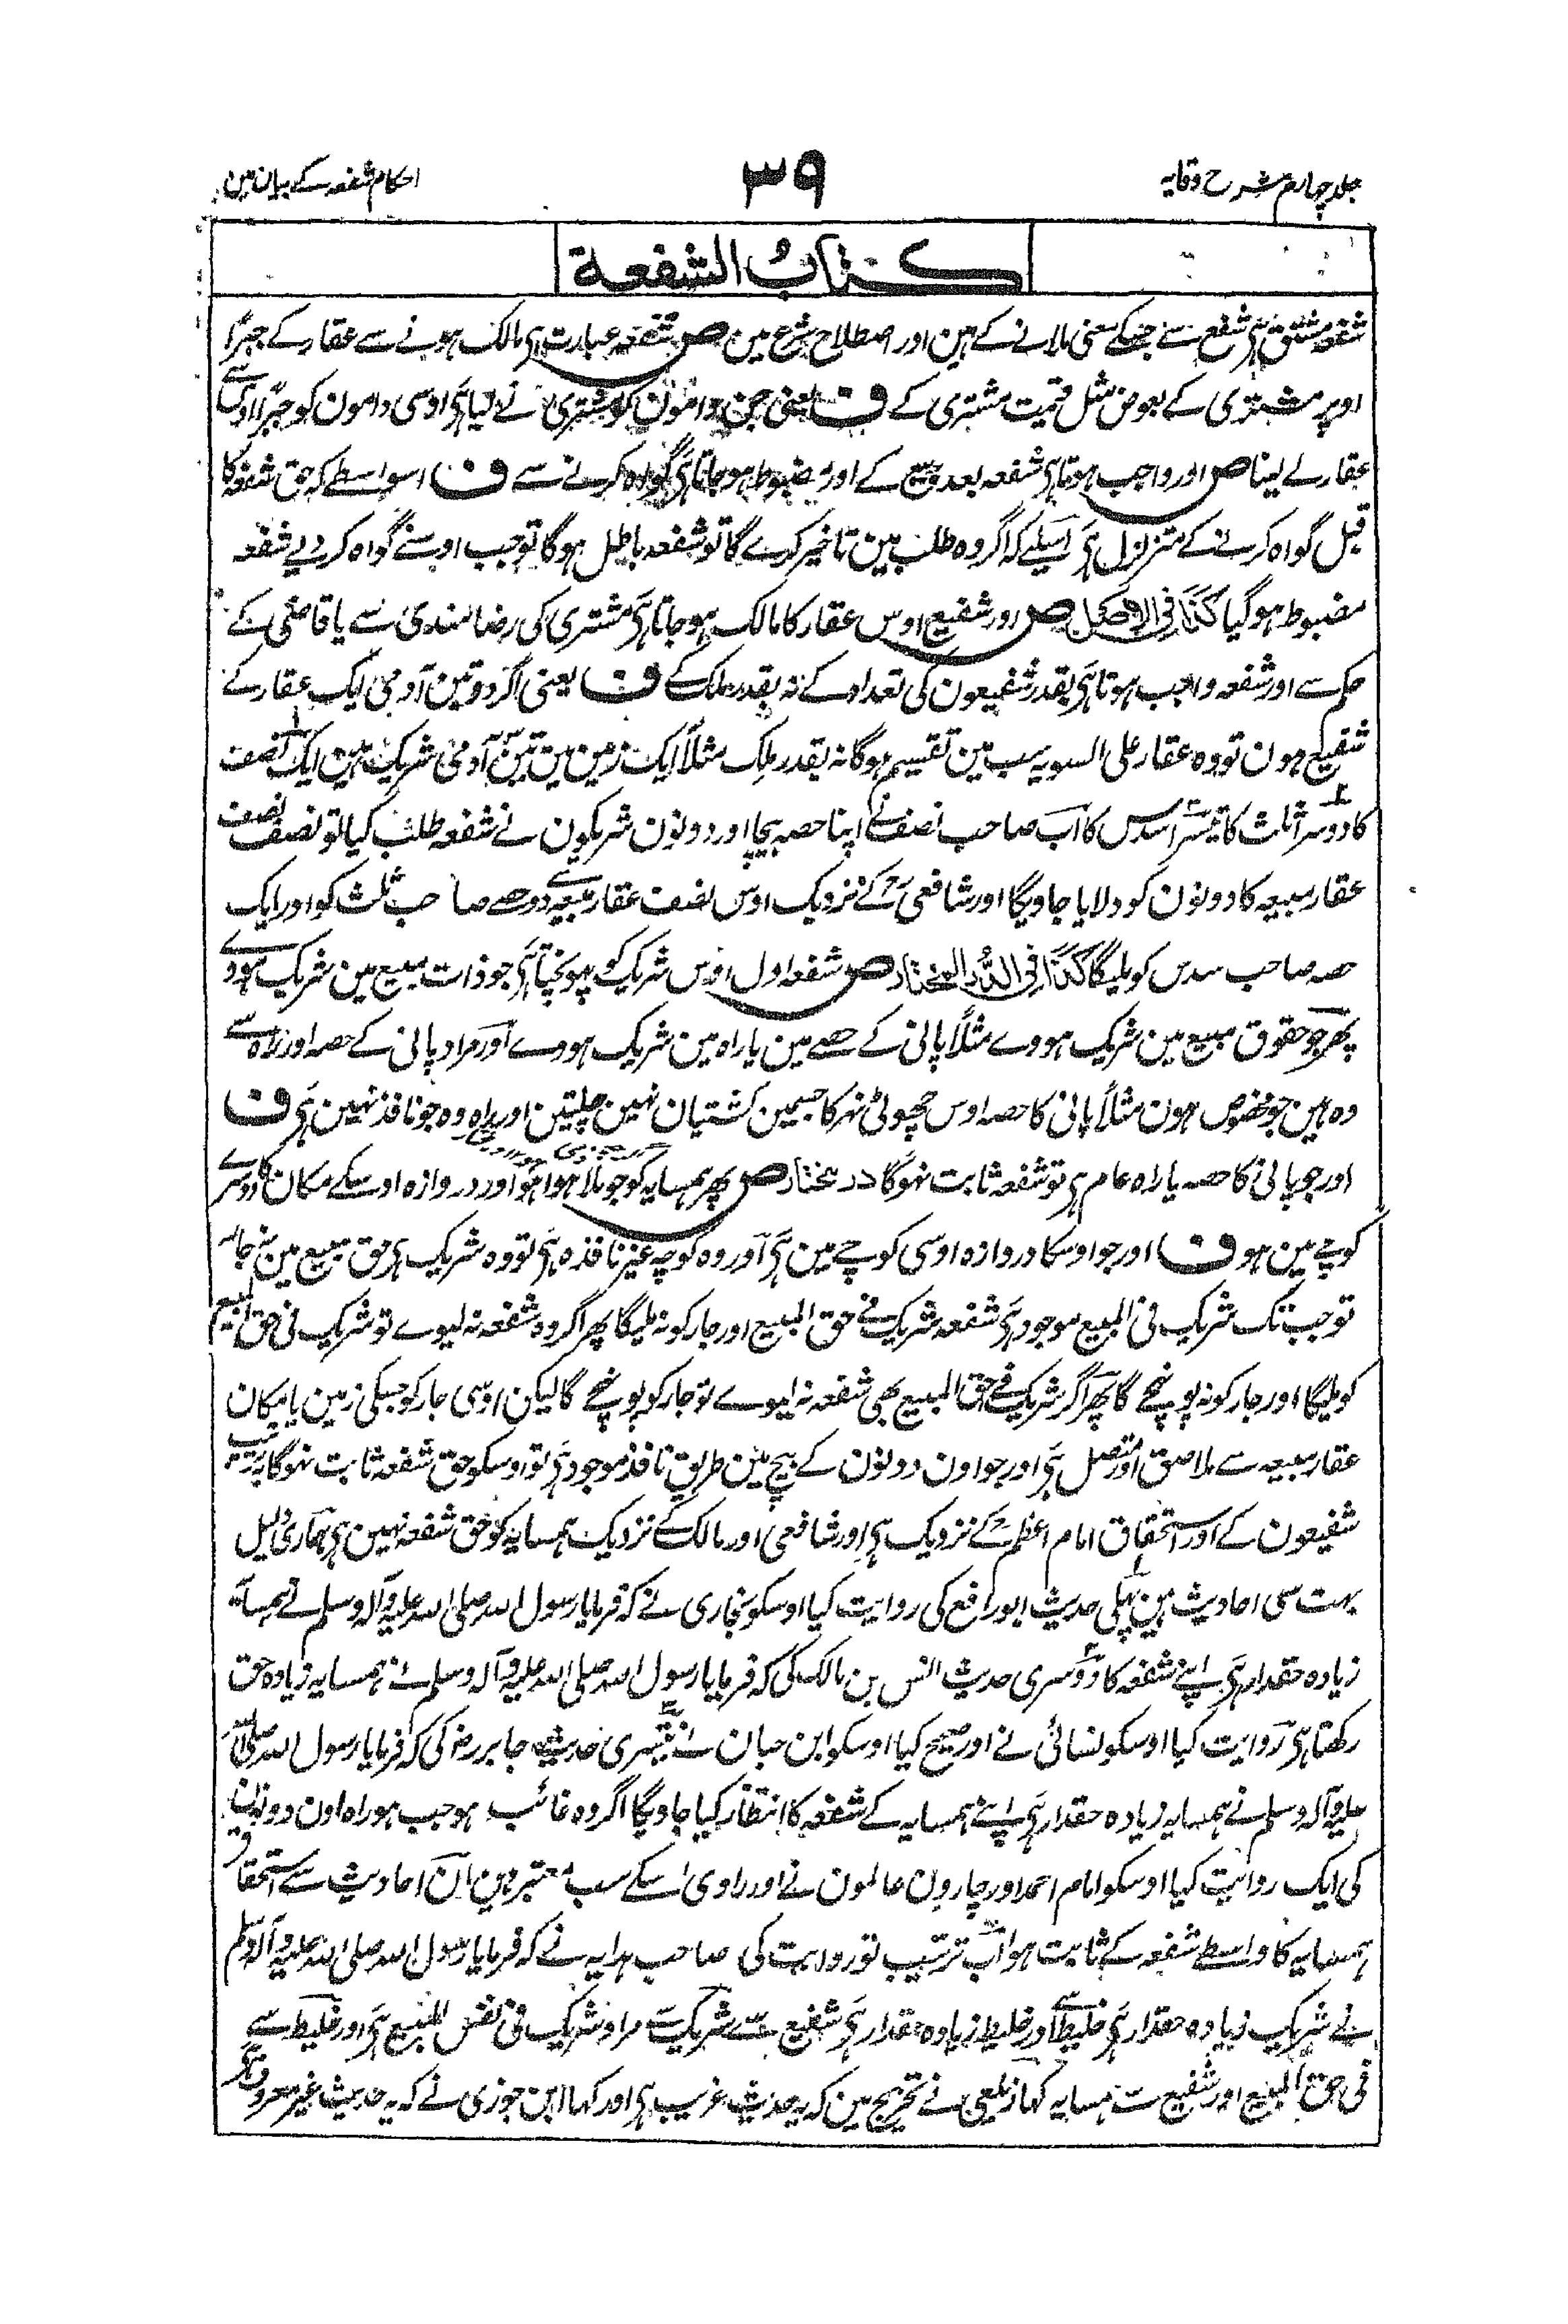 جلد چہارم شرح وقایہ
۳۹
احکام شفعہ کے بیان مین
کتاب الشفعة
شفعہ مشتق ہی شفع سے جسکے معنی ملانے کے ہین اور اصطلاح شرع مین ص شفعہ عبارت ہی مالک ہونے سے عقار کے جبرًا
اوپر مشتری کے بعوض مثل قیمت مشتری کے ف یعنی جن دامون کو مشتری نے لیا ہی اوسی دامون کو جبرًا اوس سے
عقار لے لینا ص اور واجب ہوتا ہی شفعہ بعد بیع کے اور مضبوط ہو جاتا ہی گواہ کرنے سے ف اسواسطے کہ حق شفعہ کا
قبل گواہ کرنے کے متزلزل ہی اسلیے کہ اگر وہ طلب مین تاخیر کرے گا تو شفعہ باطل ہوگا تو جب اوسنے گواہ کر دیے شفعہ
مضبوط ہوگیا کذا فی الاصل ص اور شفیع اوس عقار کا مالک ہو جاتا ہی مشتری کی رضامندی سے یا قاضی کے
حکم سے اور شفعہ واجب ہوتا ہی بقدر شفیعون کی تعداد کے نہ بقدر ملک کے ف یعنی اگر دو تین آدمی ایک عقار کے
شفیع ہون تو وہ عقار علی السویہ سب مین تقسیم ہوگا نہ بقدر ملک مثلاً ایک زمین مین تین آدمی شریک ہین ایک نصف
کا دوسرا ثلث کا تیسرا سدس کا اب صاحب نصف نے اپنا حصہ بیچا اور دونون شریکون نے شفعہ طلب کیا تو نصف نصف
عقار مبیعہ کا دونون کو دلایا جاویگا اور شافعی رح کے نزدیک اوس نصف عقار مبیعہ سے دو حصے صاحب ثلث کو اور ایک
حصہ صاحب سدس کو ملیگا کذا فی الدر المختار ص شفعہ اول اوس شریک کو پہونچتا ہی جو ذات مبیع مین شریک ہووے
پھر جو حقوق مبیع مین شریک ہووے مثلاً پانی کے حصے مین یا راہ مین شریک ہووے اور مراد پانی کے حصہ اور راہ سے
وہ ہین جو مخصوص ہون مثلاً پانی کا حصہ اوس چھوٹی نہر کا جسمین کشتیان نہین چلتین اور راہ وہ جو نافذ نہین ہی ف
اور جو پانی کا حصہ یا راہ عام ہی تو شفعہ ثابت نہوگا در مختار ص پھر ہمسایہ کو جو ملا ہوا ہو اور دروازہ اوسکے مکان کا دوسرے
کوچے مین ہو ف اور جو اوسکا دروازہ اوسی کوچے مین ہی اور وہ کوچہ غیر نافذہ ہی تو وہ شریک ہی حق مبیع مین نہ جار
تو جب تک شریک فی المبیع موجود ہی شفعہ شریک فی حق المبیع اور جار کو نہ ملیگا پھر اگر وہ شفعہ نہ لیوے تو شریک فی حق المبیع
کو ملیگا اور جار کو نہ پہونچے گا پھر اگر شریک فی حق المبیع بھی شفعہ نہ لیوے تو جار کو پہونچے گا لیکن اوسی جار کو جسکی زمین یا مکان
عقار مبیعہ سے ملاصق اور متصل ہی اور جو اون دونون کے بیچ مین طریق نافذ موجود ہی تو اوسکو حق شفعہ ثابت نہوگا یہ ترتیب
شفیعون کے اور استحقاق امام اعظم رح کے نزدیک ہی اور شافعی اور مالک کے نزدیک ہمسایہ کو حق شفعہ نہین ہی ہماری دلیل
بہت سی احادیث ہین پہلی حدیث ابو رافع کی روایت کیا اوسکو بخاری نے کہ فرمایا رسول اللہ صلی اللہ علیہ وآلہ وسلم نے ہمسایہ
زیادہ حقدار ہی اپنے شفعہ کا دوسری حدیث انس بن مالک کی کہ فرمایا رسول اللہ صلی اللہ علیہ وآلہ وسلم نے ہمسایہ زیادہ حق
رکھتا ہی روایت کیا اوسکو نسائی نے اور صحیح کیا اوسکو ابن حبان نے تیسری حدیث جابر رض کی کہ فرمایا رسول اللہ صلی اللہ
علیہ وآلہ وسلم نے ہمسایہ زیادہ حقدار ہی اپنے ہمسایہ کے شفعہ کا انتظار کیا جاویگا اگر وہ غائب ہو جب ہو راہ اون دونون
کی ایک روایت کیا اوسکو امام احمد اور چارون عالمون نے اور راوی اسکے سب معتبر ہین ان احادیث سے استحقاق
ہمسایہ کا واسطے شفعہ کے ثابت ہوا اب ترتیب تو روایت کی صاحب ہدایہ نے کہ فرمایا رسول اللہ صلی اللہ علیہ وآلہ وسلم
نے شریک زیادہ حقدار ہی خلیط سے اور خلیط زیادہ حقدار ہی شفیع سے شریک سے مراد شریک فی نفس المبیع ہی اور خلیط سے
فی حق المبیع اور شفیع سے ہمسایہ کہا زیلعی نے تخریج مین کہ یہ حدیث غریب ہی اور کہا ابن جوزی نے کہ یہ حدیث غیر معروف ہی